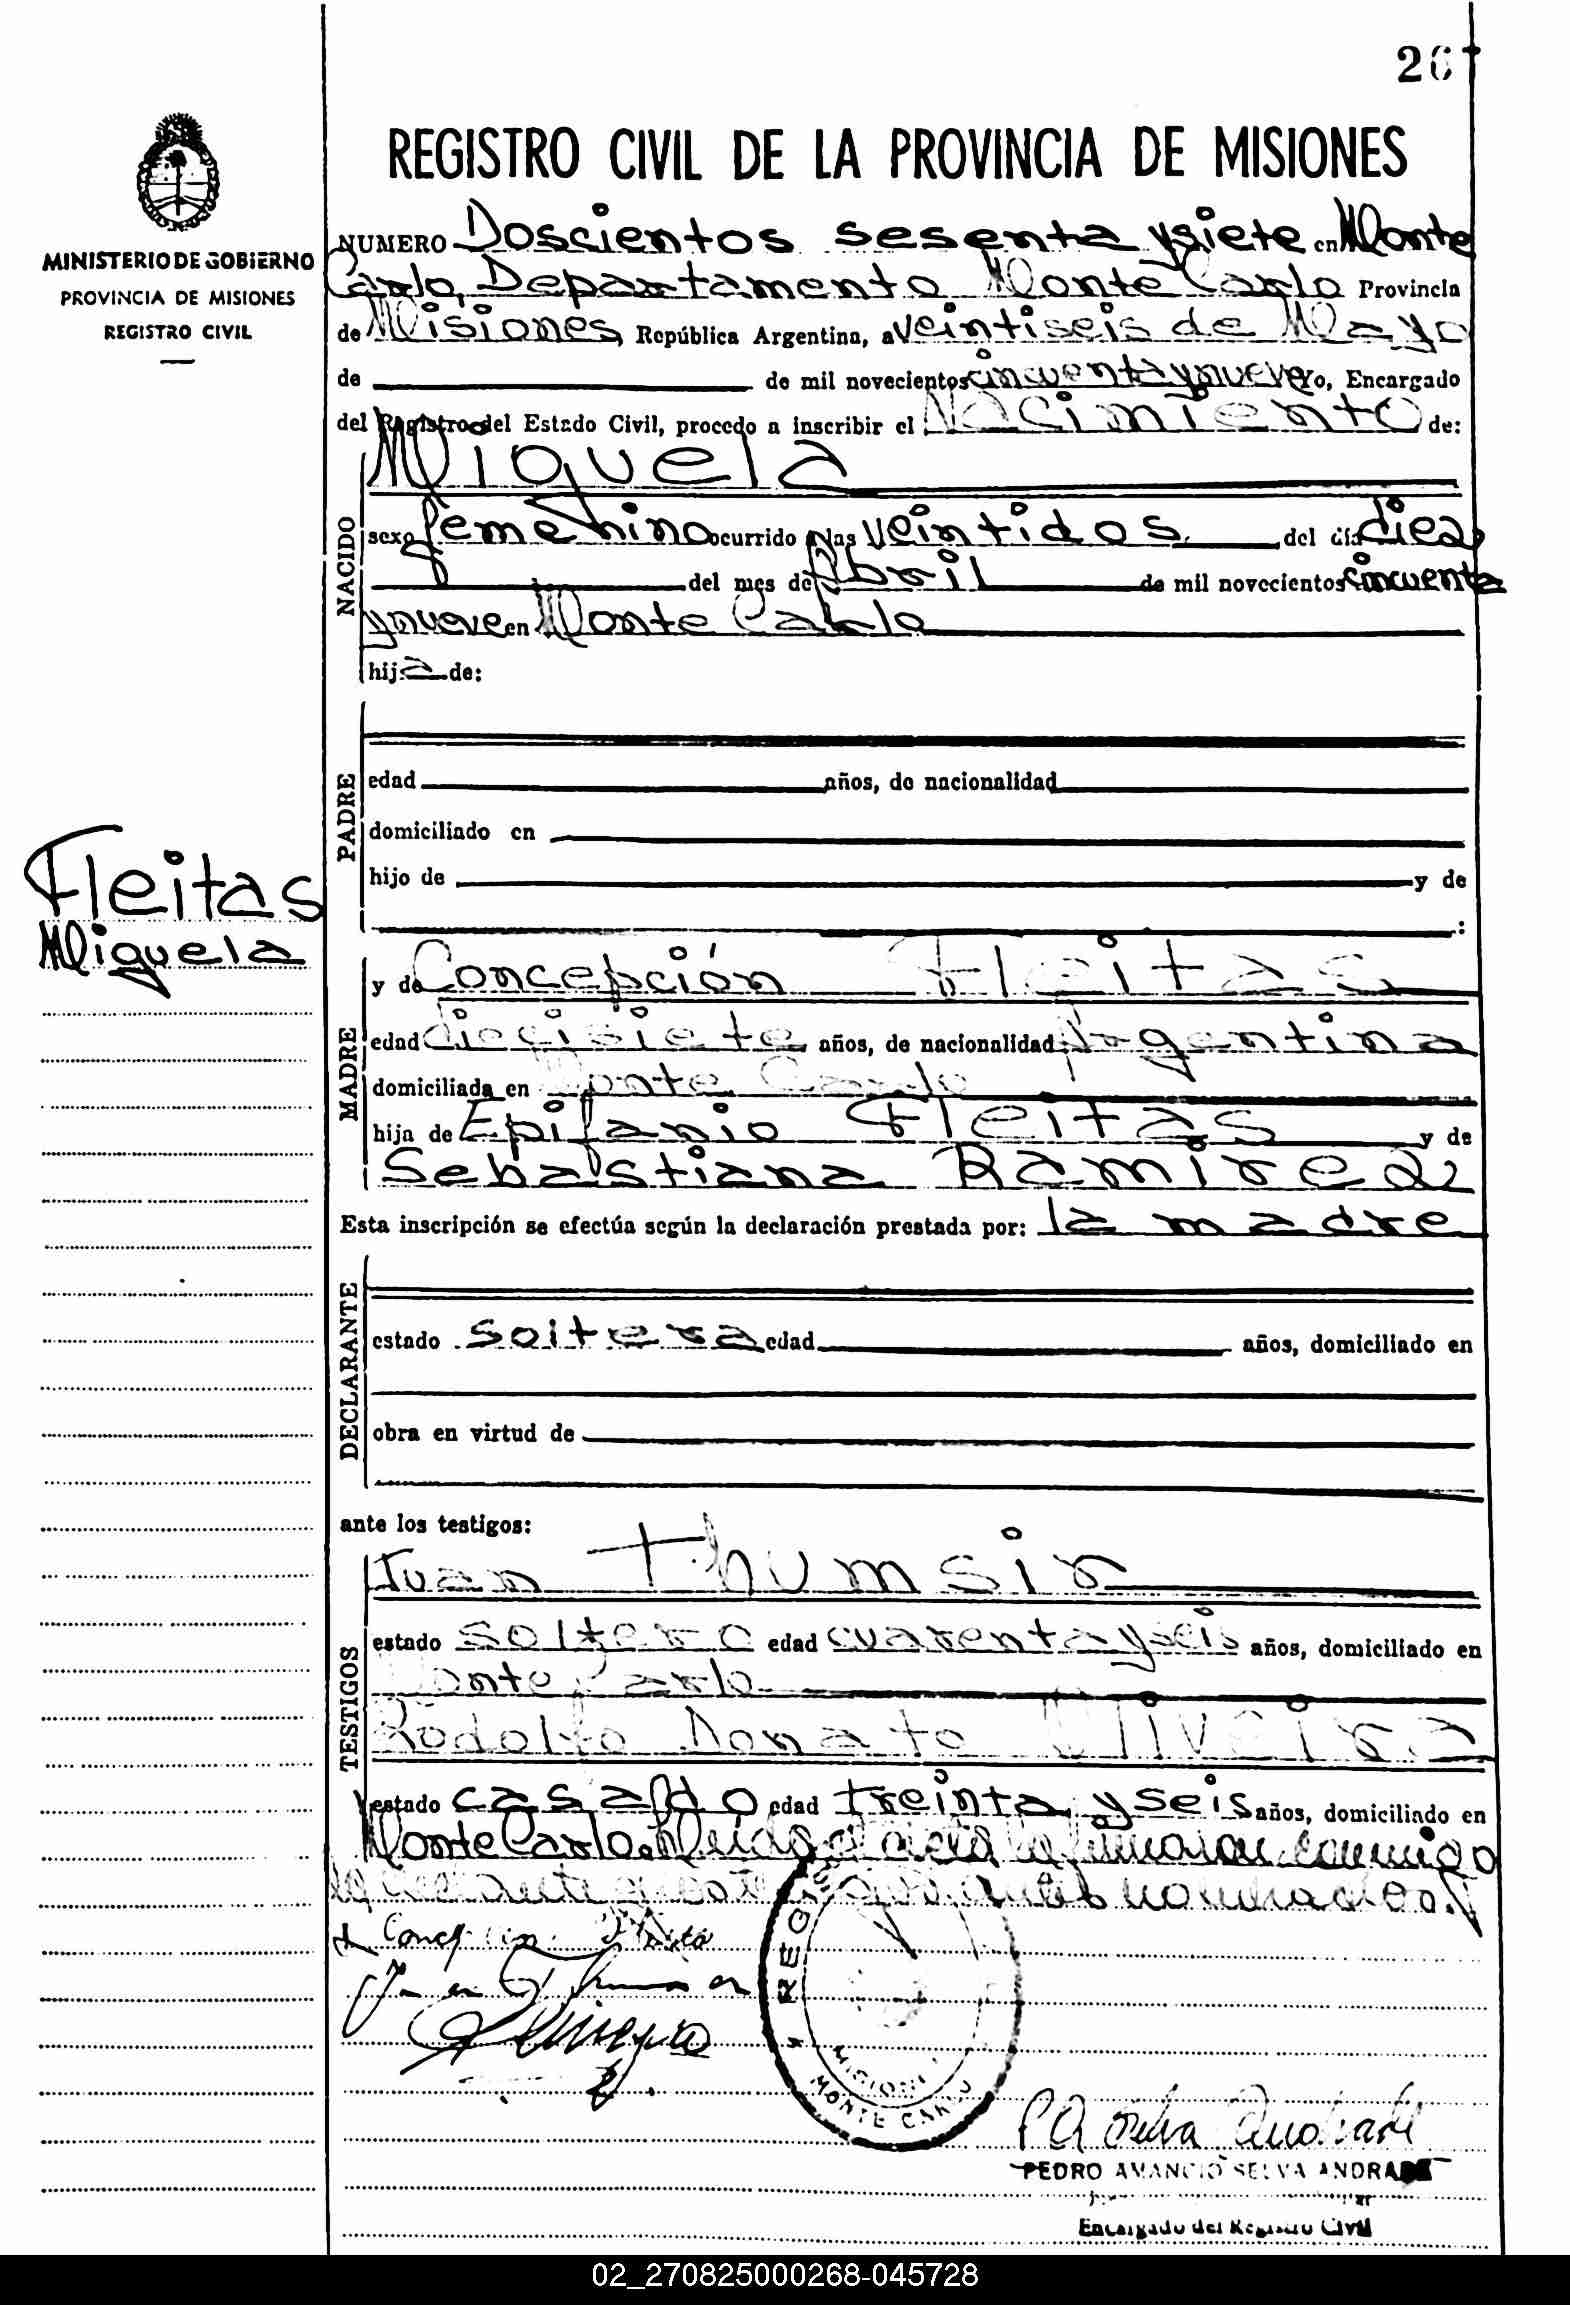 267
REGISTRO CIVIL DE LA PROVINCIA DE MISIONES
MINISTERIO DE GOBIERNO
PROVINCIA DE MISIONES
REGISTRO CIVIL
NUMERO Doscientos sesenta y siete en Monte
Carlo, Departamento Monte Carlo Provincia
de Misiones, República Argentina, a veintiseis de Mayo
de de mil novecientos cincuenta y nueve Yo, Encargado
del Registro del Estado Civil, procedo a inscribir el Nacimiento de:
NACIDO
Miguela
sexo femenino ocurrido a las veintidos del día diez
del mes de Abril de mil novecientos cincuenta
y nueve en Monte Carlo
hija de:
PADRE
edad años, de nacionalidad
domiciliado en
hijo de y de
:
Fleitas
Miguela
MADRE
y de Concepción Fleitas
edad diecisiete años, de nacionalidad Argentina
domiciliada en Monte Carlo
hija de Epifanio Fleitas y de
Sebastiana Ramirez
Esta inscripción se efectúa según la declaración prestada por: la madre
DECLARANTE
estado soltera edad años, domiciliado en
obra en virtud de
ante los testigos:
TESTIGOS
Juan Thumsir
estado soltero edad cuarenta y seis años, domiciliado en
Monte Carlo
Rodolfo Donato Oliveira
estado casado edad treinta y seis años, domiciliado en
Monte Carlo. Leida el acta la firmaron conmigo
la declarante y testigos antes nombrados.
Concepcion Fleita
REGIS
MISIONES
MONTE CARLO
P A Selva Andrade
PEDRO AMANCIO SELVA ANDRADE
Encargado del Registro Civil
02_270825000268-045728